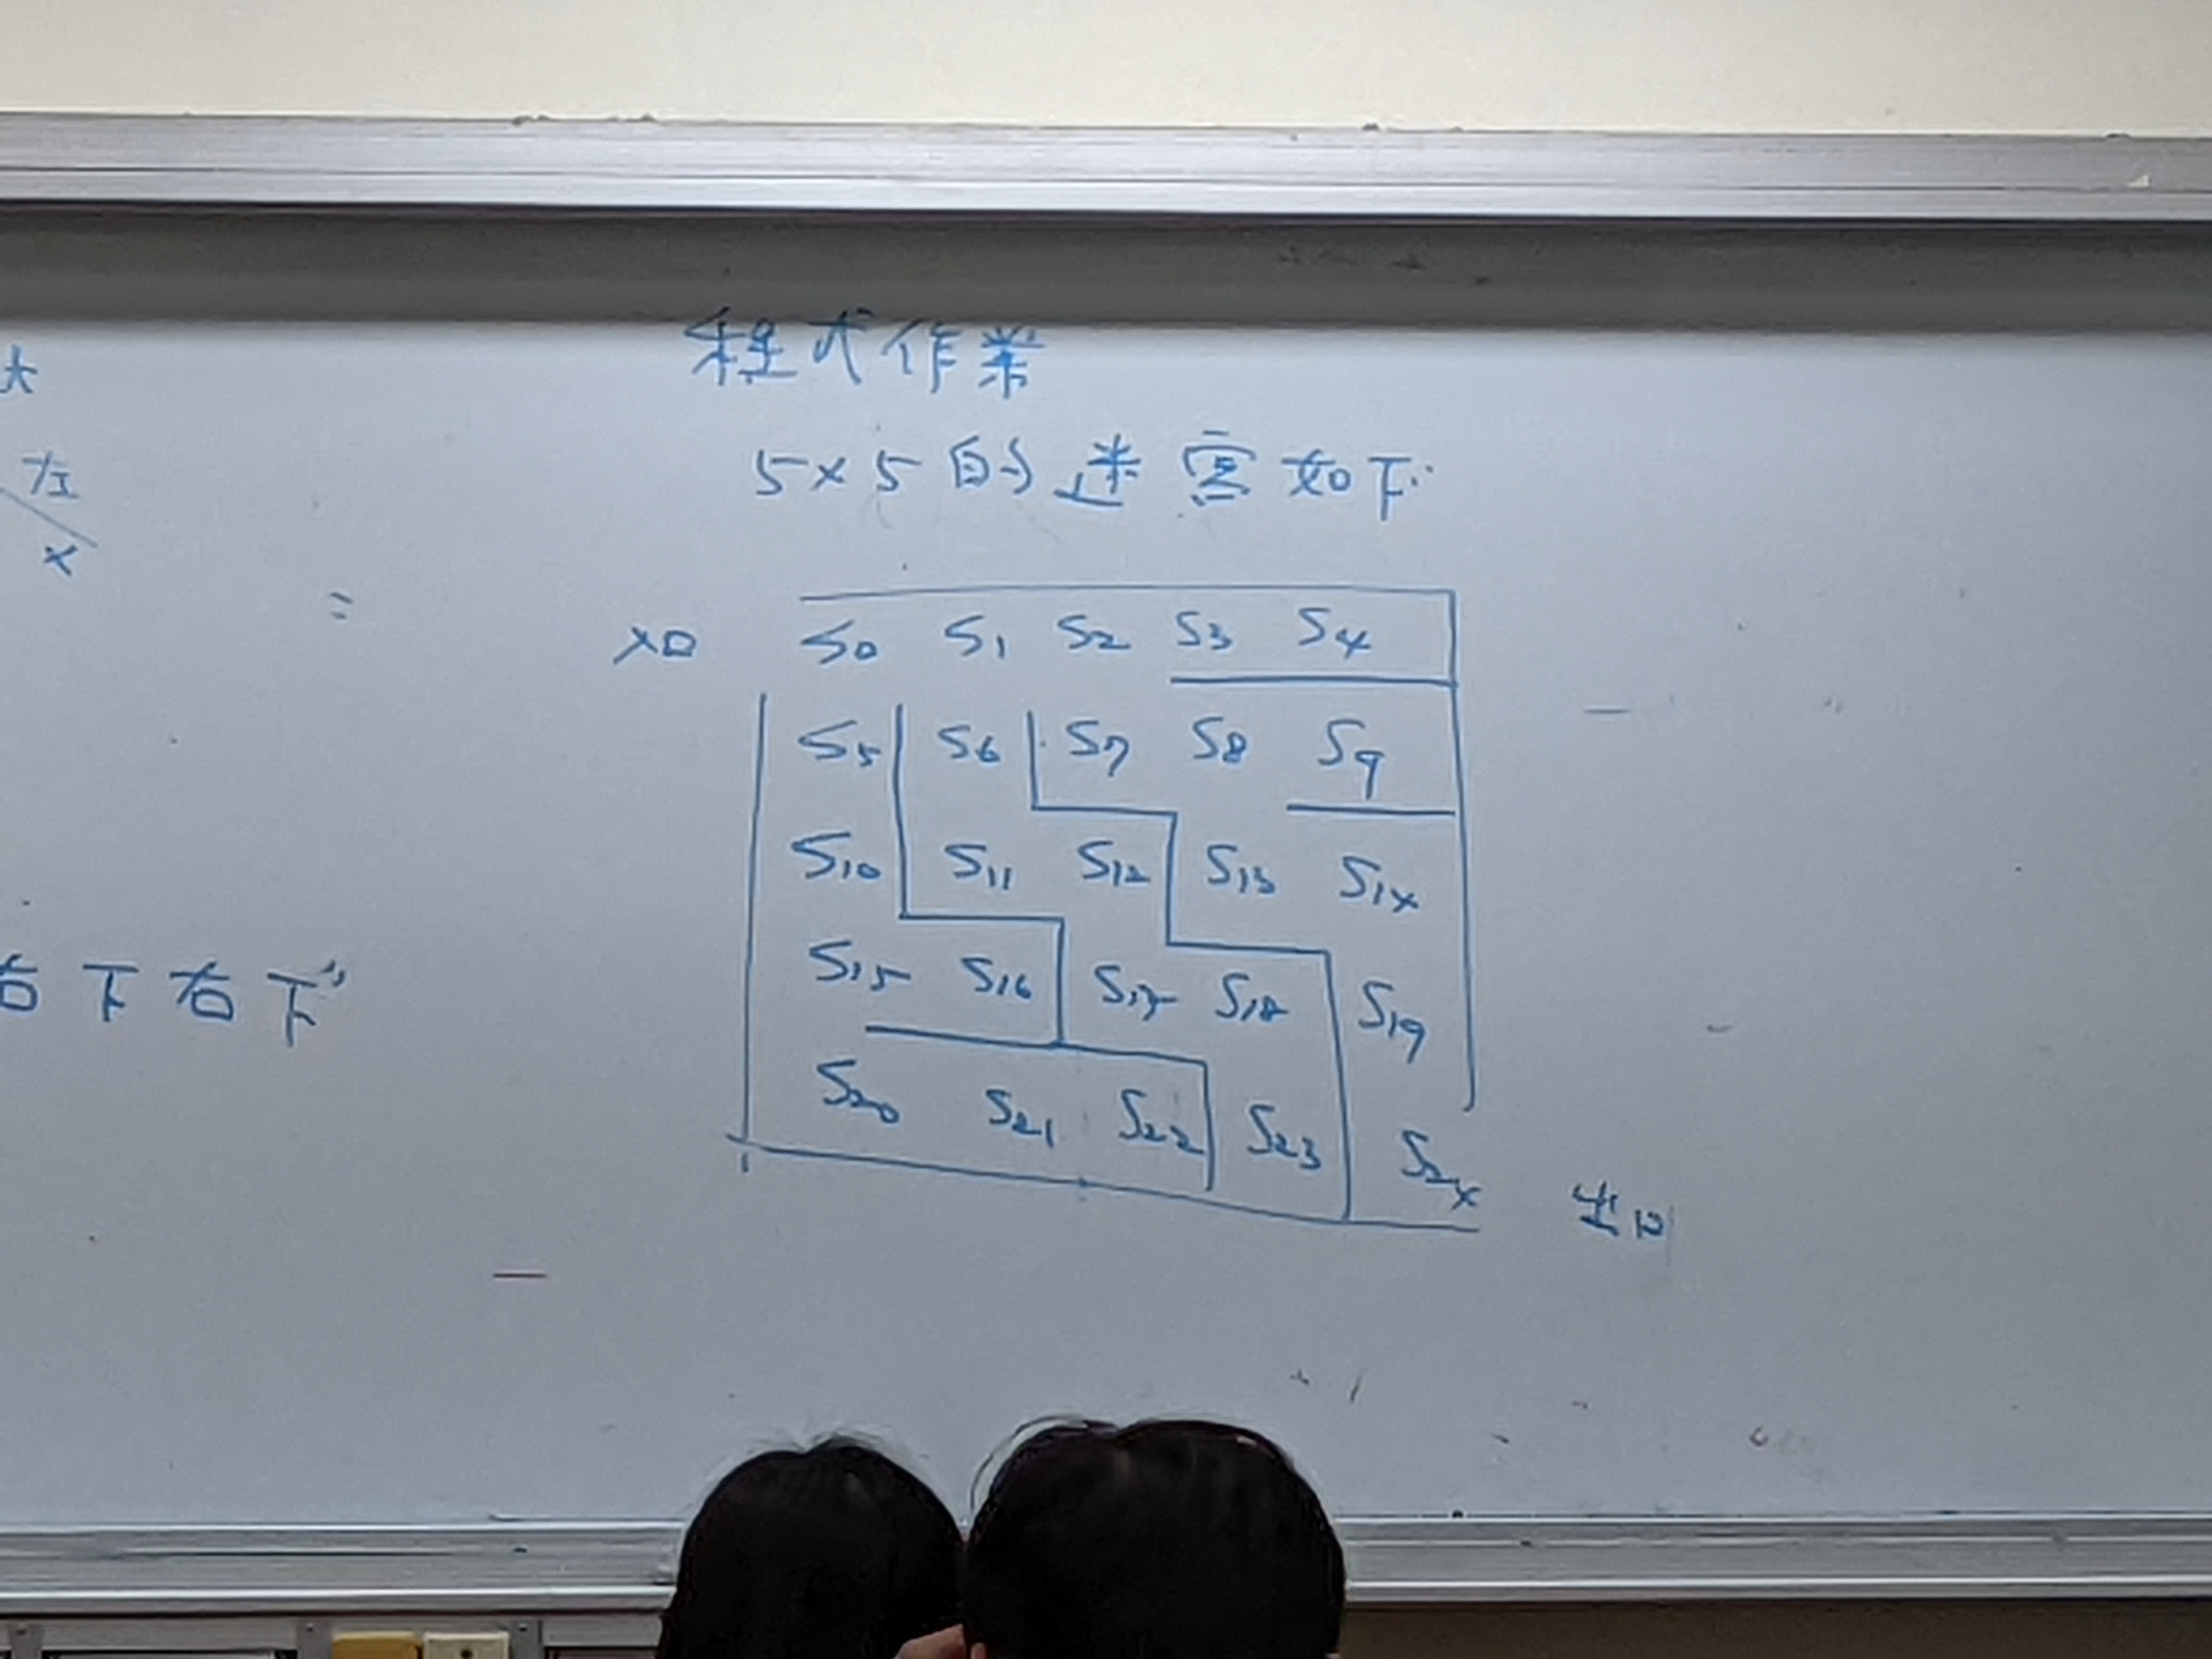 程式作業
5×5的迷宮如下:
大
左
x
=
入口 S0 S1 S2 S3 S4
S5 S6 S7 S8 S9
S10 S11 S12 S13 S14
右下右下"
S15 S16 S17 S18 S19
S20 S21 S22 S23 S24 出口